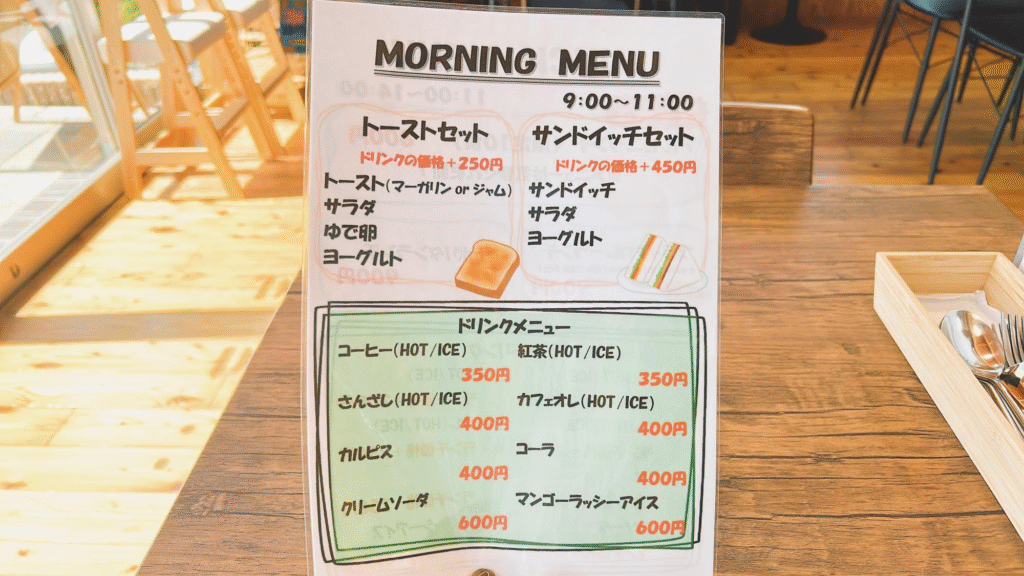 MORNING MENU
9:00~11:00
トーストセット
ドリンクの価格+250円
トースト(マーガリン or ジャム)
サラダ
ゆで卵
ヨーグルト
サンドイッチセット
ドリンクの価格+450円
サンドイッチ
サラダ
ヨーグルト
ドリンクメニュー
コーヒー(HOT/ICE)
350円
紅茶(HOT/ICE)
350円
さんざし(HOT/ICE)
400円
カフェオレ(HOT/ICE)
400円
カルピス
400円
コーラ
400円
クリームソーダ
600円
マンゴーラッシーアイス
600円